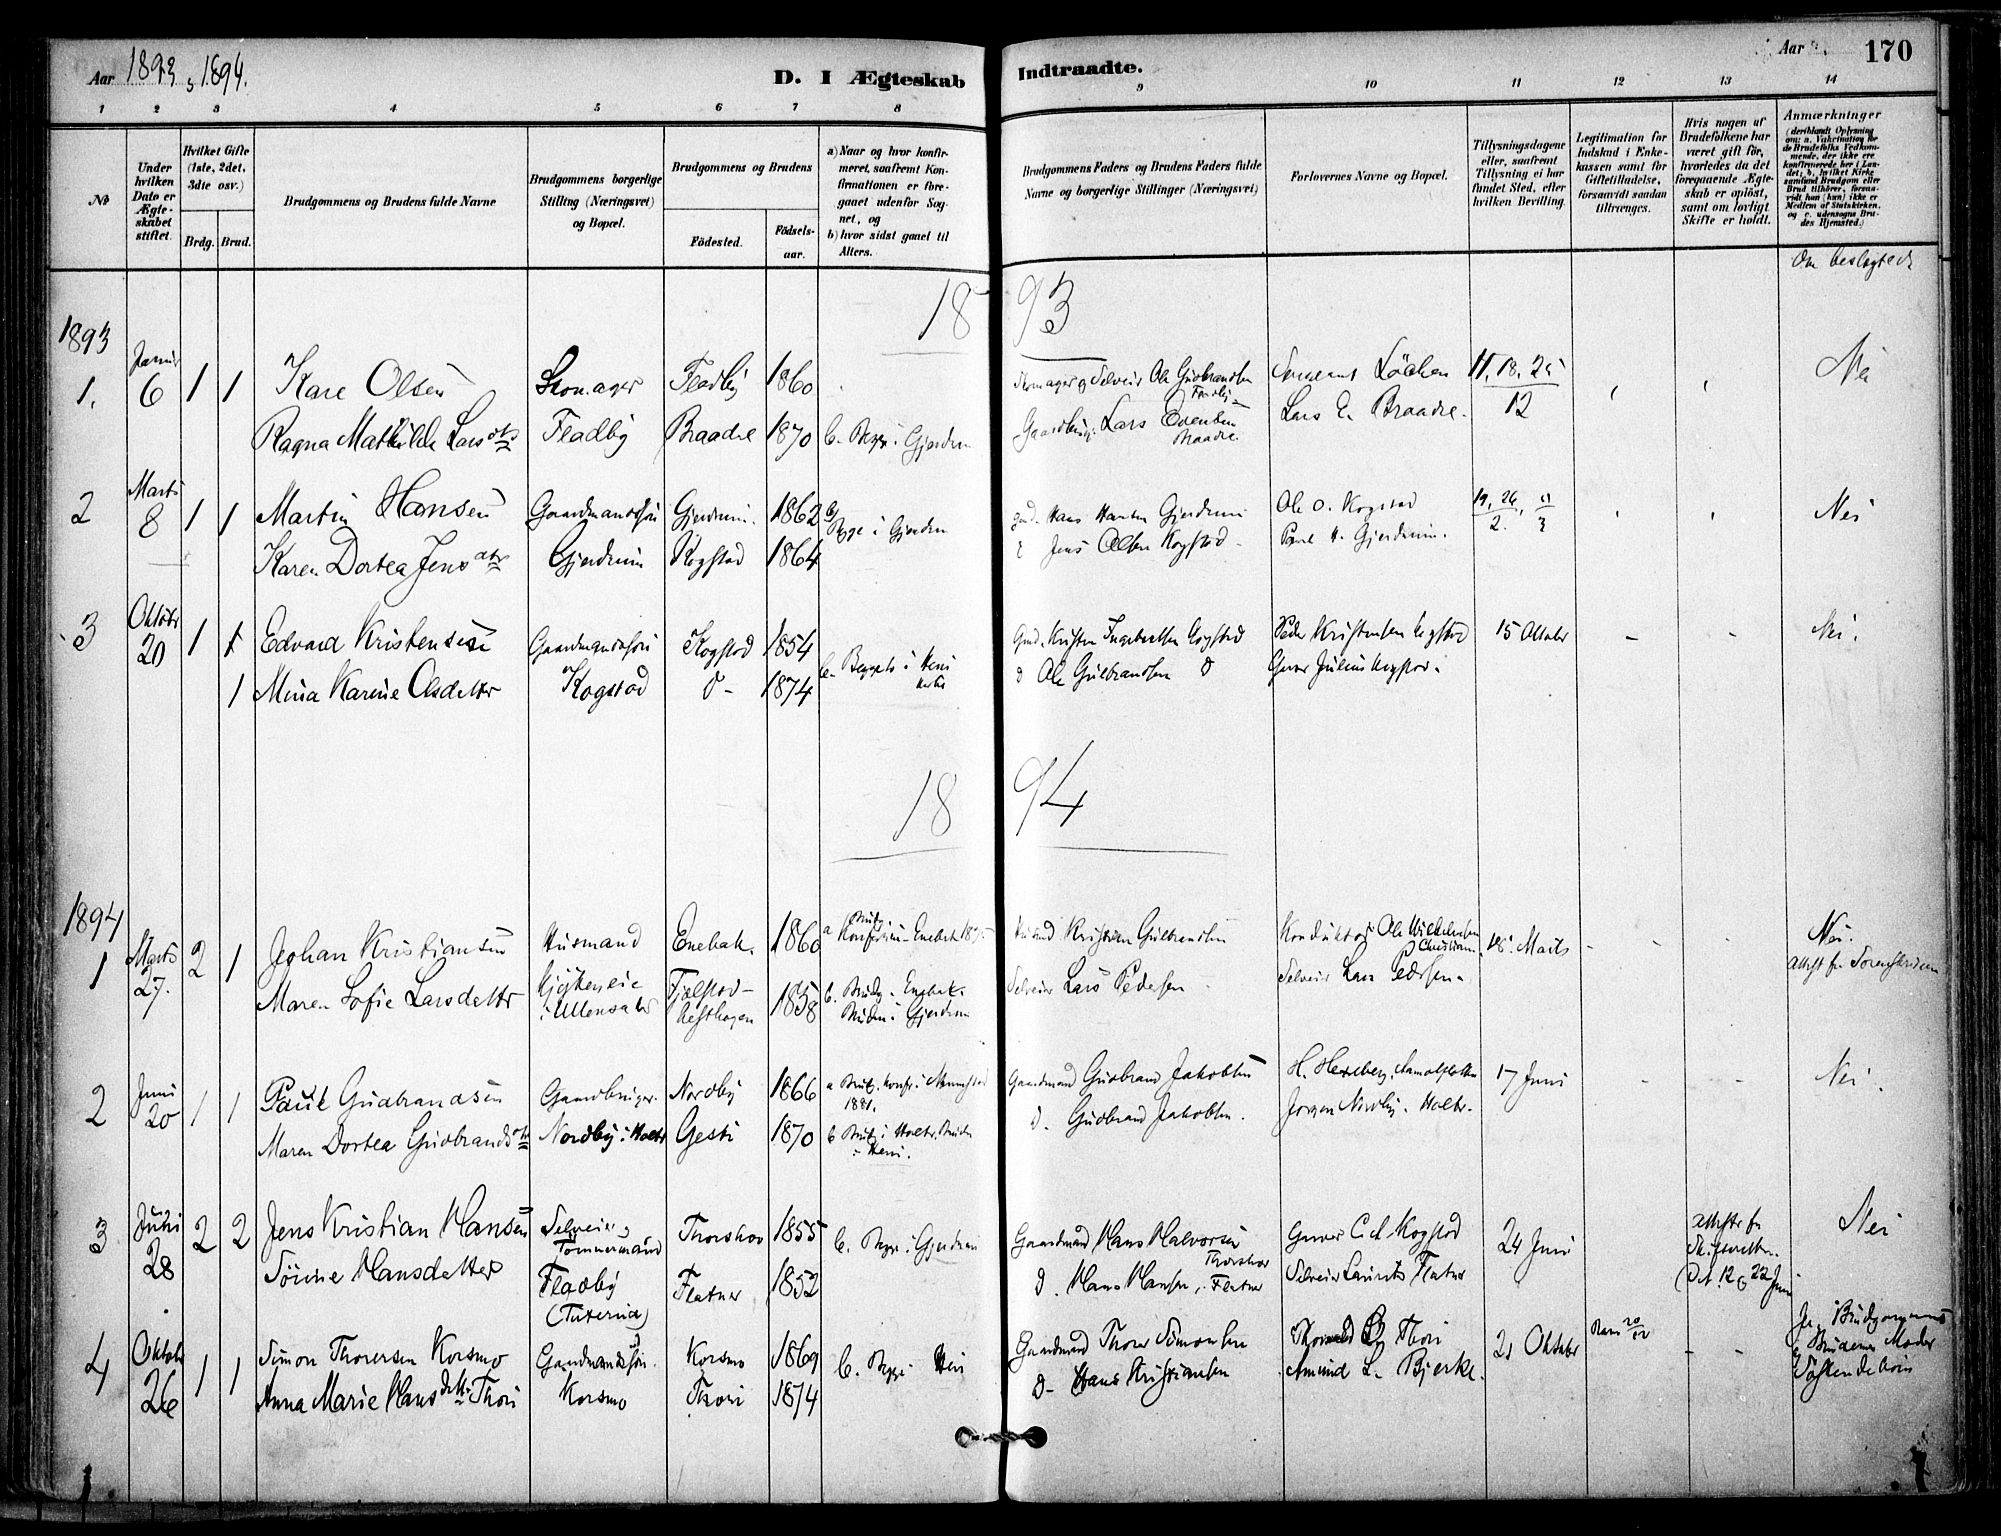 Aar 1893, 1894.
D. I Ægteskab
Indtraadte.
Aar
170
1 2 3 4 5 6 7 8
9 10 11 12 13 14
No
Under hvilken Dato er Ægteskabet stiftet.
Hvilket Gifte (1ste, 2det, 3die osv.)
Brdg. Brud.
Brudgommens og Brudens fulde Navne
Brudgommens borgerlige Stilling (Næringsvei) og Bopæl.
Brudgommens og Brudens
Fødested.
Fødselsaar.
a) Naar og hvor konfirmeret, saafremt Konfirmationen er foregaaet udenfor Sognet, og
b) hvor sidst gaaet til Alters.
Brudgommens Faders og Brudens Faders fulde Navne og borgerlige Stillinger (Næringsvei)
Forlovernes Navne og Bopæl.
Tillysningsdagene eller, saafremt Tillysning ei har fundet Sted, efter hvilken Bevilling.
Legitimation for Indskud i Enkekassen samt for Giftetilladelse, forsaavidt saadan tiltrænges.
Hvis nogen af Brudefolkene har været gift før, hvorledes da det foregaaende Ægteskab er opløst, samt om lovligt Skifte er holdt.
Anmærkninger
(deriblandt Oplysning om: a. Vakcination for de Brudefolks Vedkommende, der ikke ere konfirmerede her i Landet; b. hvilket Kirkesamfund Brudgom eller Brud tilhører, forsaavidt han (hun) ikke er Medlem af Statskirken, og c. udensogns Brudes Hjemsted.)
Om beslægtede
18 93
1893
1. Januar 6 1 1 Kare Olsen Skomager Fladby 1860
Skomager og Selveier Ole Gudbrandsen Fladby Sergeant Løchen 11, 18, 25 / 12 Nei
Ragna Mathilde Larsdtr Fladby Braadre 1870 b. Begge i Gjerdrum
Gaardbrug. Lars Evensen Braadre. Lars E. Braadre.
2 Marts 8 1 1 Martin Hansen Gaardmandssøn Gjerdrum. 1862 b) Begge i Gjerdrum
Gmd. Hans Hansen Gjerdrum Ole O. Kogstad 19, 26 / 2. Nei
Karen Dortea Jensdtr Gjerdrum Kogstad 1864
Jens Olsen Kogstad - H. Gjerdrum.
3 Oktober 20 1 1 Edvard Kristensen Gaardmandssøn Kogstad 1854
Gmd. Kristen Ingebretsen Kogstad Peder Kristensen Kogstad 15 Oktober - - Nei.
1 Mina Karine Olsdatter Kogstad d- 1874 b. Begge i Heni Kirke
d Ole Gulbrandsen d Garver Julius Kogstad.
18 94
1894
1 Marts 27. 2 1 Johan Kristiansen Husmand Enebak. 1860
Kristian Gulbrandsen Konduktør Ole Wilhelmsen 18. Marts - - - Nei.
Maren Sofie Larsdatter i Ullensaker 1858 b. Brudg. i Enebak. Bruden i Gjerdrum
Selveier Lars Pedersen Selveier Lars Pedersen.
Attest fra Sorenskriveren
2 Juni 20 1 1 Paul Gudbrandsen Gaardbruger. Nordby 1866 a Brudg. Konf. i 1881.
Gaardmand Gudbrand Jakobsen H. Herberg, 17 Juni - - Nei.
Maren Dortea Gudbrandsdtr Nordby i Holter Gesti 1870 b Brudg. i Holter, Bruden i Heni.
d. Gudbrand Jakobsen. Jørgen Nordby. Holter.
3 Juni 28 2 2 Jens Kristian Hansen Selveier, Tømmermand Thorshov 1855 b. Begge i Gjerdrum
Gaardmand Hans Halvorsen Thorshov Garver Kogstad 24 Juni Attester fra Skifteretten. Dat. 12 & 22 Juni Nei
Sørine Hansdatter Fladby Flatner 1852
d. Hans Hansen, Flatner Selveier Laurits Flatner
4 Oktober 26 1 1 Simon Thorersen Korsmo Gaardmandssøn. Korsmo 1869 b. Begge Heni
Gaardmand Thorer Simonsen Thori 21 Oktober - - Ja, Brudgommens og Brudens Moder Søskendebørn
Anna Marie Hansdatter Thori Korsmo Thori 1874
d- Hans Kristiansen Amund L. Bjerke.